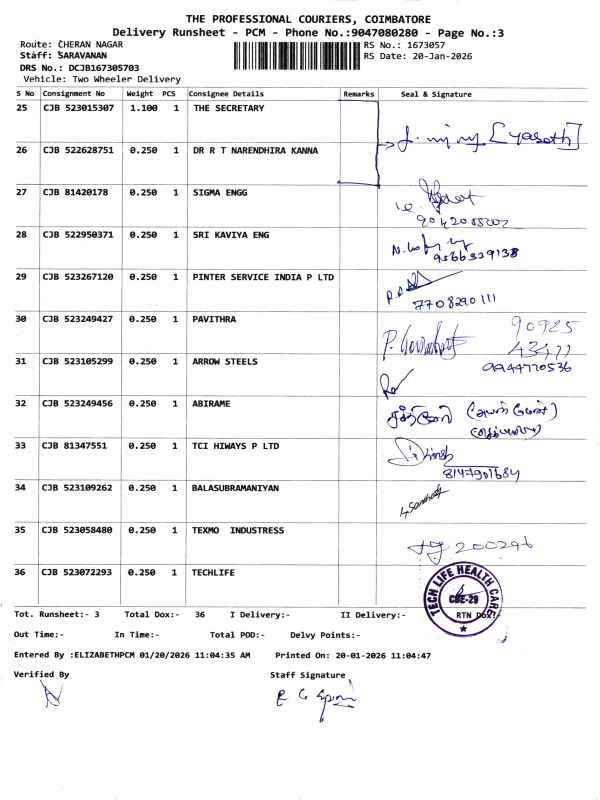 THE PROFESSIONAL COURIERS, COIMBATORE
Delivery Runsheet - PCM - Phone No.:9047080280 - Page No.:3
Route: CHERAN NAGAR RS No.: 1673057
Staff: SARAVANAN RS Date: 20-Jan-2026
DRS No.: DCJB167305703
Vehicle: Two Wheeler Delivery
S No Consignment No Weight PCS Consignee Details Remarks Seal & Signature
25 CJB 523015307 1.100 1 THE SECRETARY
[yasoth]
26 CJB 522628751 0.250 1 DR R T NARENDHIRA KANNA
27 CJB 81420178 0.250 1 SIGMA ENGG
28 CJB 522950371 0.250 1 SRI KAVIYA ENG
9566539138
29 CJB 523267120 0.250 1 PINTER SERVICE INDIA P LTD
7708290111
30 CJB 523249427 0.250 1 PAVITHRA
90925
31 CJB 523105299 0.250 1 ARROW STEELS
9944770536
32 CJB 523249456 0.250 1 ABIRAME
33 CJB 81347551 0.250 1 TCI HIWAYS P LTD
8147901684
34 CJB 523109262 0.250 1 BALASUBRAMANIYAN
35 CJB 523058480 0.250 1 TEXMO INDUSTRESS
200296
36 CJB 523072293 0.250 1 TECHLIFE
TECH LIFE HEALTH CARE
CBE-29
Tot. Runsheet:- 3 Total Dox:- 36 I Delivery:- II Delivery:- RTN Dox:-
Out Time:- In Time:- Total POD:- Delvy Points:-
Entered By :ELIZABETHPCM 01/20/2026 11:04:35 AM Printed On: 20-01-2026 11:04:47
Verified By Staff Signature